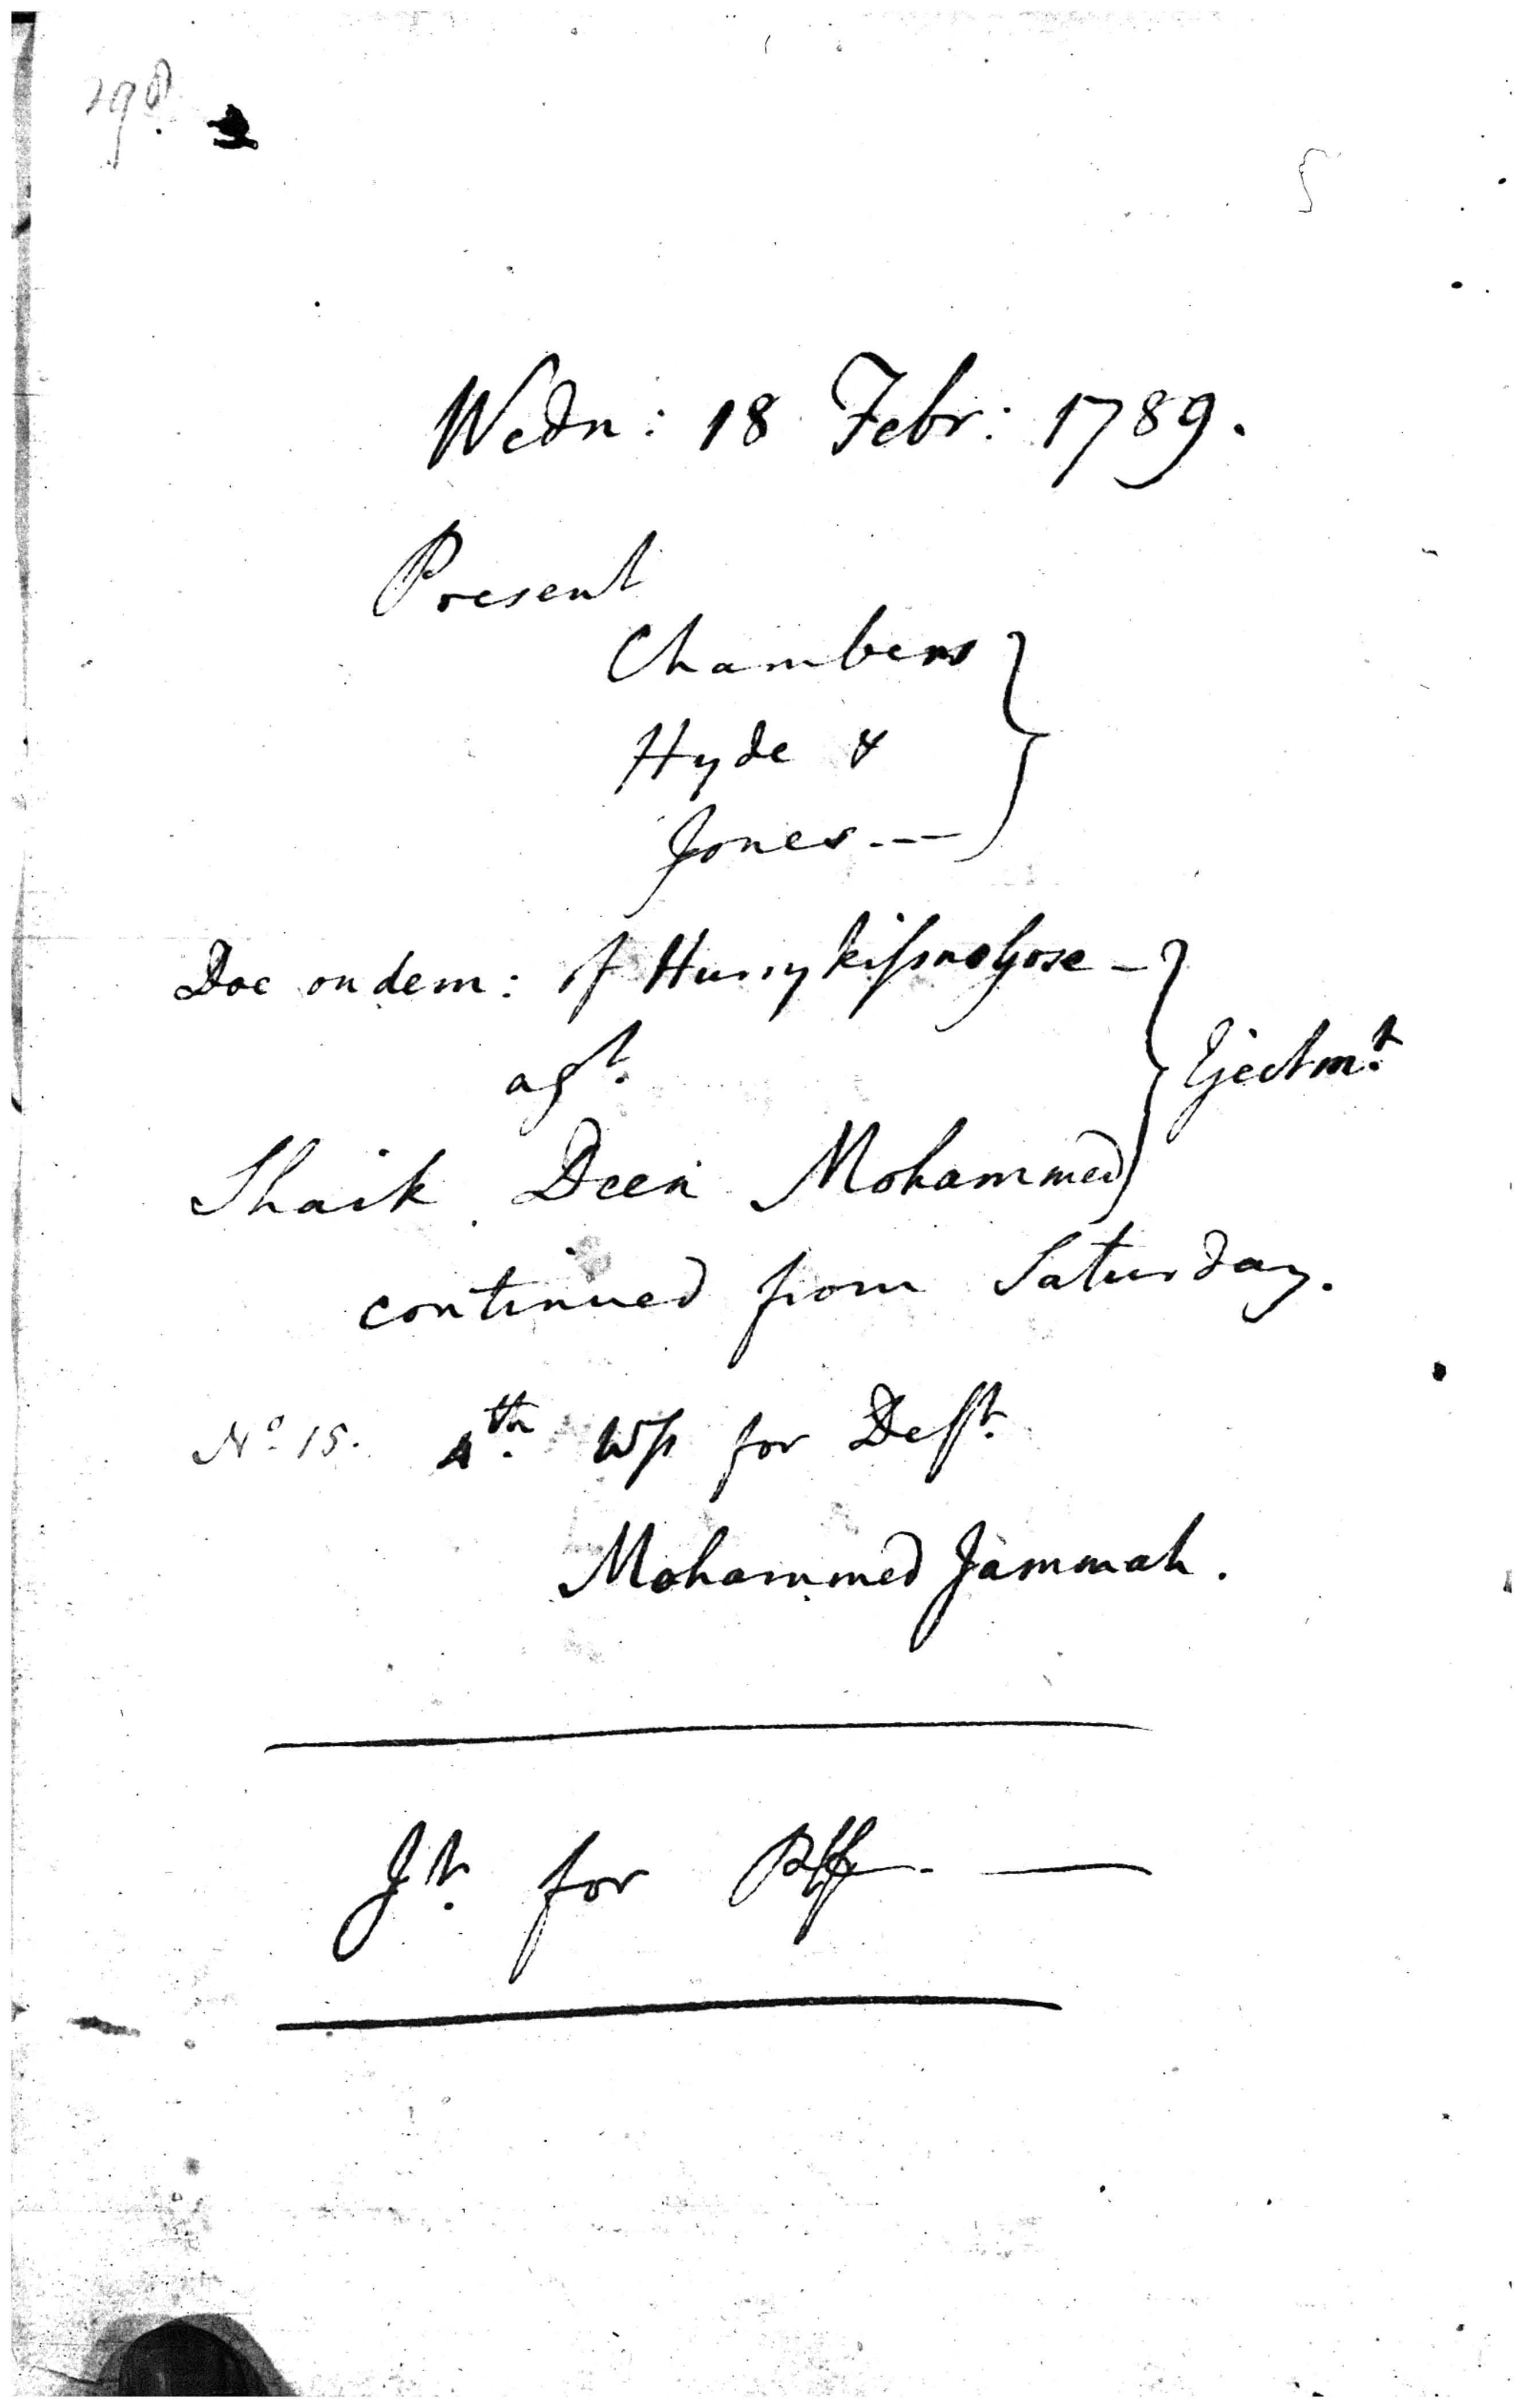 298.
Wedn: 18 Febr: 1789.
Present
Chambers
Hyde &
Jones ---
Doe on dem: of Hurrykissnogose -
agst.
Ejectmt.
Shaik Deen Mohammed
continued from Saturday.
No. 15. 4th. Wss for Deft.
Mohammed Jammah.
Jt. for Plff. —